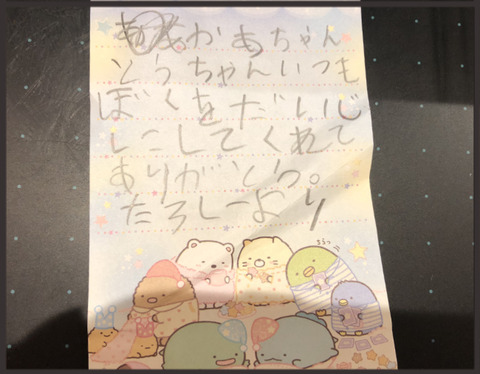 おかあちゃん
とうちゃんいつも
ぼくをだいじ
にしてくれて
ありがとう。
たろしーより